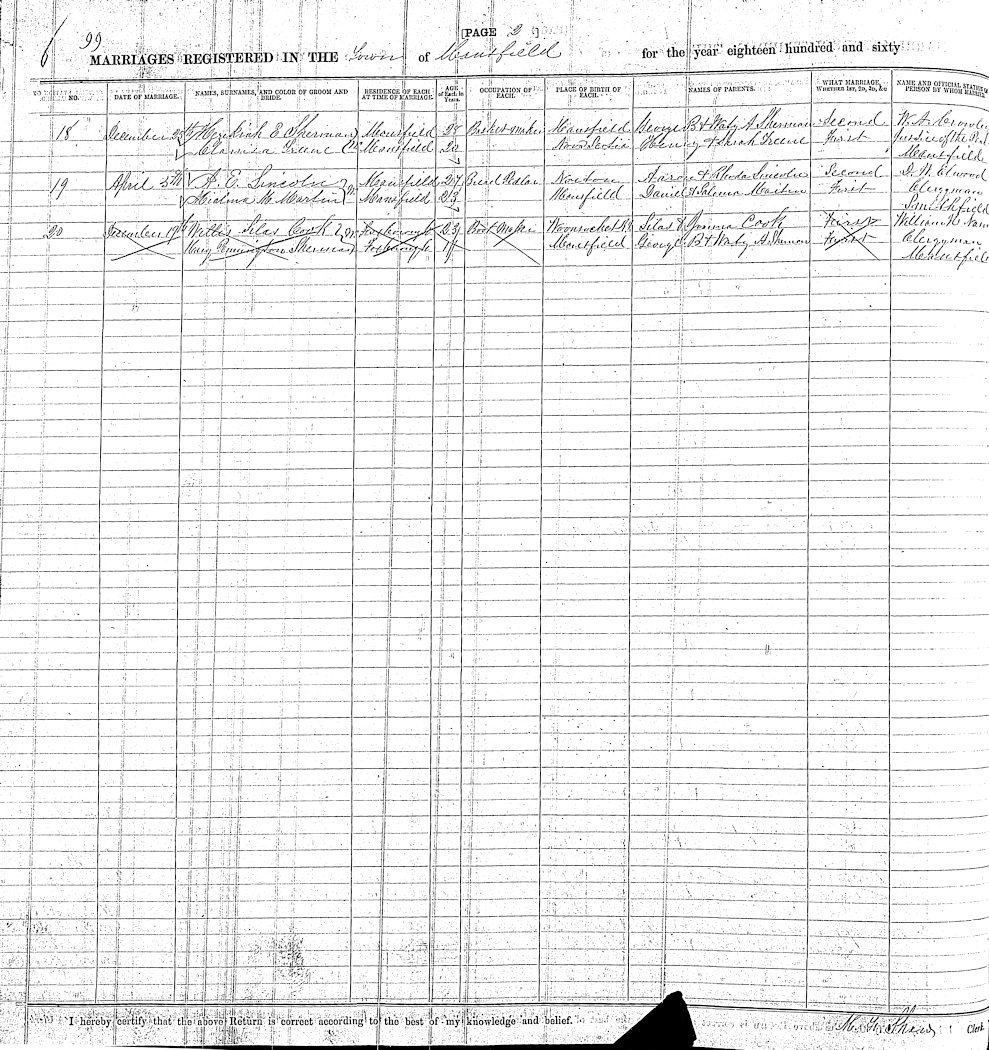 99
[PAGE 2]
6
MARRIAGES REGISTERED IN THE Town of Mansfield for the year eighteen hundred and sixty
NO.
DATE OF MARRIAGE.
NAMES, SURNAMES, AND COLOR OF GROOM AND BRIDE.
RESIDENCE OF EACH AT TIME OF MARRIAGE.
AGE of Each in Years.
OCCUPATION OF EACH.
PLACE OF BIRTH OF EACH.
NAMES OF PARENTS.
WHAT MARRIAGE, WHETHER 1ST, 2D, 3D, &c
NAME AND OFFICIAL STATION OF PERSON BY WHOM MARRIED.
18 December 25th Hezekiah E Sherman Mansfield 28 Basket maker Mansfield George B & Waty A Sherman Second W. A. Crowley
Clarissa Greene Mansfield 22 Nova Scotia Henry & Sarah Greene First Justice of the
Mansfield
19 April 5th A. E. Lincoln Mansfield 27 Bread Pedlar Norton Aaron & Rhoda Lincoln Second D. W. Elwood
M. Martin Mansfield 23 Mansfield Daniel & Martin First Clergyman
Smithfield
20 December 19th Willis Silas Cook Foxborough 23 Boot Maker Woonsocket Silas & Cook First William
Mary Pennington Sherman Foxborough Mansfield George B & Waty A Sherman First Clergyman
Mansfield
I hereby certify that the above Return is correct according to the best of my knowledge and belief.
Clerk